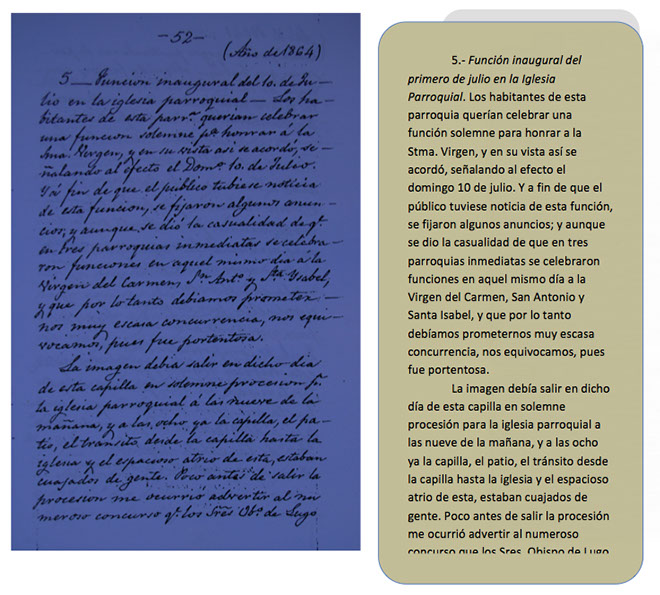 —52—
(Año de 1864)
5 — Funcion inaugural del 10. de Ju-
lio en la iglesia parroquial — Los ha-
bitantes de esta parr.ª querian celebrar
una funcion solemne p.ª honrar á la
Sma. Virgen, y en su vista asi se acordó, se-
ñalando al efecto el Dom.º 10. de Julio.
Y á fin de que el público tubiese noticia
de esta funcion, se fijaron algunos anun-
cios; y aunque se dió la casualidad de q.e
en tres parroquias inmediatas se celebra-
ron funciones en aquel mismo dia á la
Virgen del Carmen, S.n Ant.º y S.ta Ysabel,
y que por lo tanto debiamos prometer-
nos muy escasa concurrencia, nos equi-
vocamos, pues fue portentosa.
La imagen debia salir en dicho dia
de esta capilla en solemne procesion p.ª
la iglesia parroquial á las nueve de la
mañana, y a las ocho ya la capilla, el pa-
tio, el transito desde la capilla hasta la
iglesia y el espacioso atrio de esta, estaban
cuajados de gente. Poco antes de salir la
procesion me ocurrió advertir al nu-
meroso concurso q.e los Sres. Ob.º de Lugo
5.- Función inaugural del
primero de julio en la Iglesia
Parroquial. Los habitantes de esta
parroquia querían celebrar una
función solemne para honrar a la
Stma. Virgen, y en su vista así se
acordó, señalando al efecto el
domingo 10 de julio. Y a fin de que el
público tuviese noticia de esta función,
se fijaron algunos anuncios; y aunque
se dio la casualidad de que en tres
parroquias inmediatas se celebraron
funciones en aquel mismo día a la
Virgen del Carmen, San Antonio y
Santa Isabel, y que por lo tanto
debíamos prometernos muy escasa
concurrencia, nos equivocamos, pues
fue portentosa.
La imagen debía salir en dicho
día de esta capilla en solemne
procesión para la iglesia parroquial a
las nueve de la mañana, y a las ocho
ya la capilla, el patio, el tránsito desde
la capilla hasta la iglesia y el espacioso
atrio de esta, estaban cuajados de
gente. Poco antes de salir la procesión
me ocurrió advertir al numeroso
concurso que los Sres. Obispo de Lugo